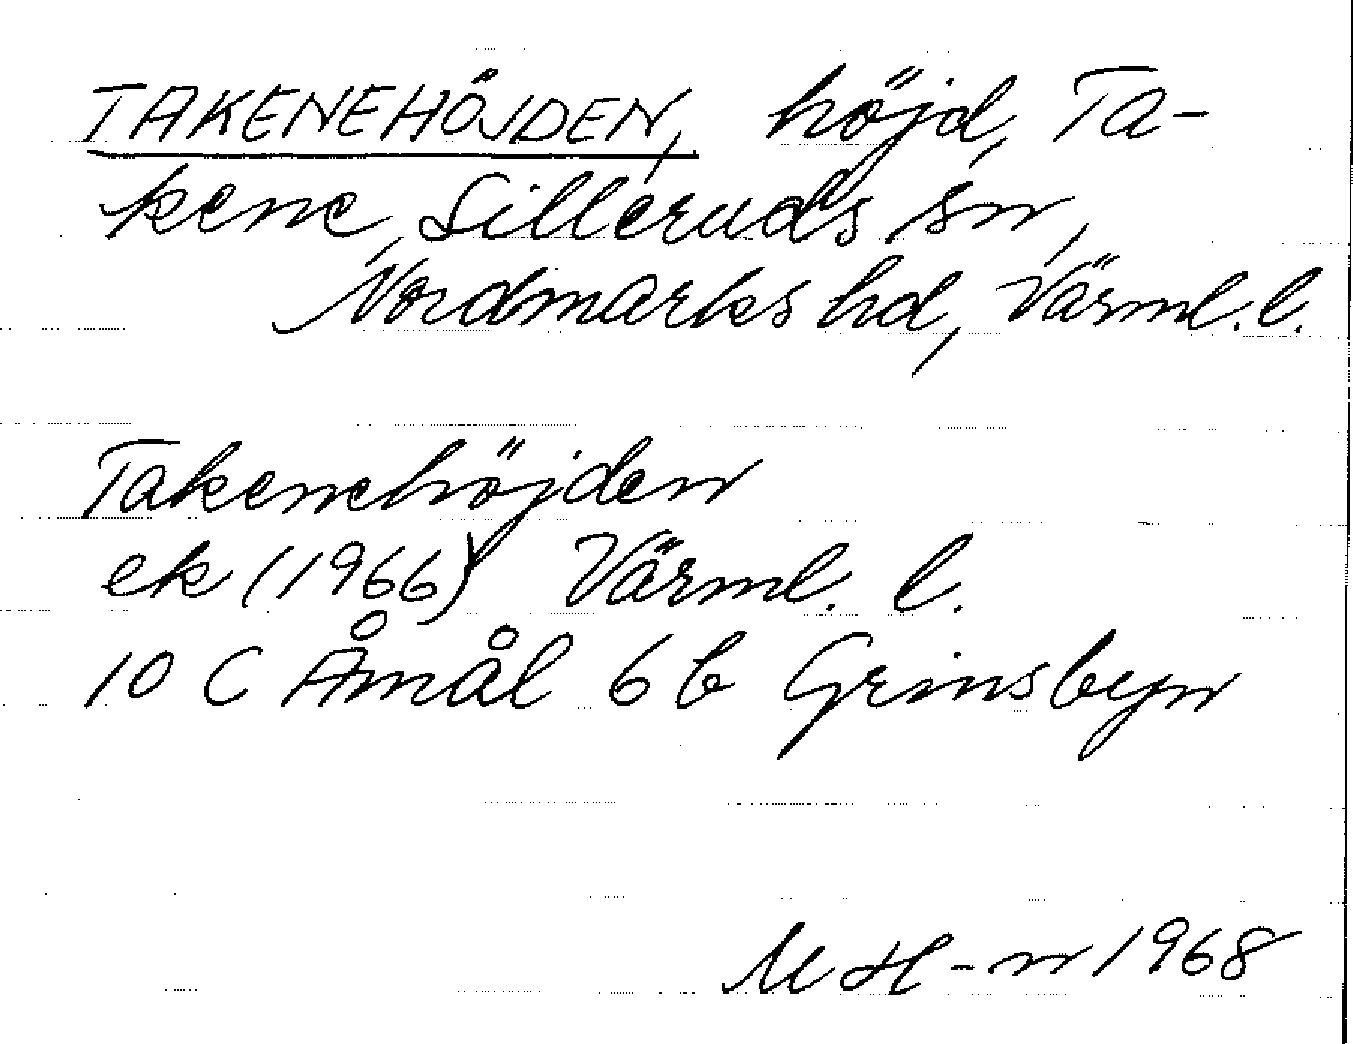 TAKENEHÖJDEN, höjd, Ta-
kene, Silleruds sn,
Nordmarks hd, Värml. l.
Takenehöjden
ek (1966) Värml. l.
10 C Åmål 6 b Grinsbyn
M H-n 1968